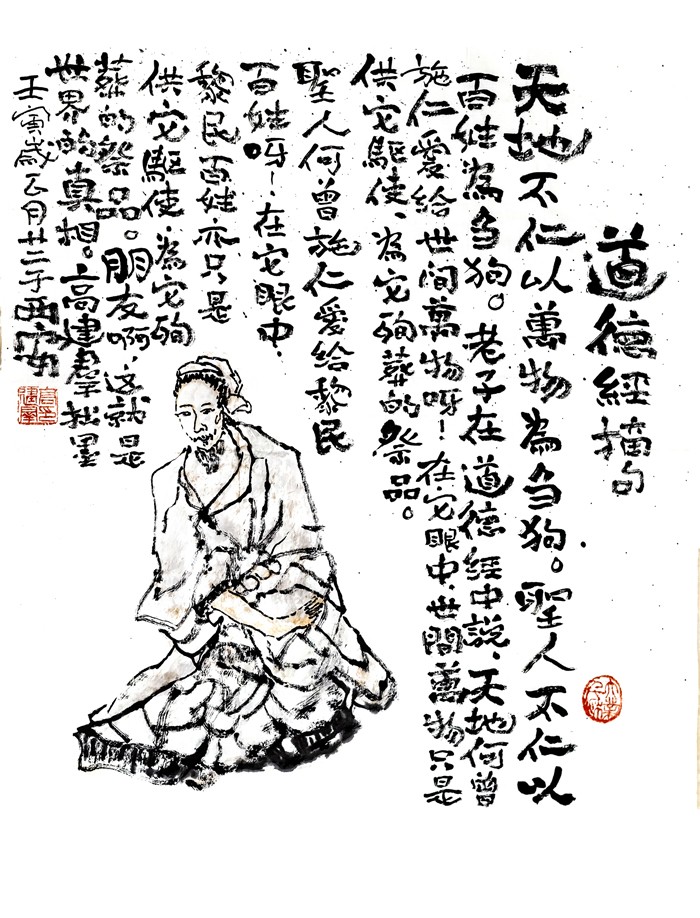 道德經摘句
天地不仁以萬物為刍狗。聖人不仁以
百姓為刍狗。老子在道德經中說、天地何曾
施仁愛給世间萬物呀！在它眼中、世間萬物只是
供它驅使、為它殉葬的祭品。
聖人何曾施仁愛給黎民
百姓呀！在它眼中、
黎民百姓亦只是
供它驅使、為它殉
葬的祭品。朋友啊、这就是
世界的真相。高建羣拙墨
壬寅歲正月廿二于西安